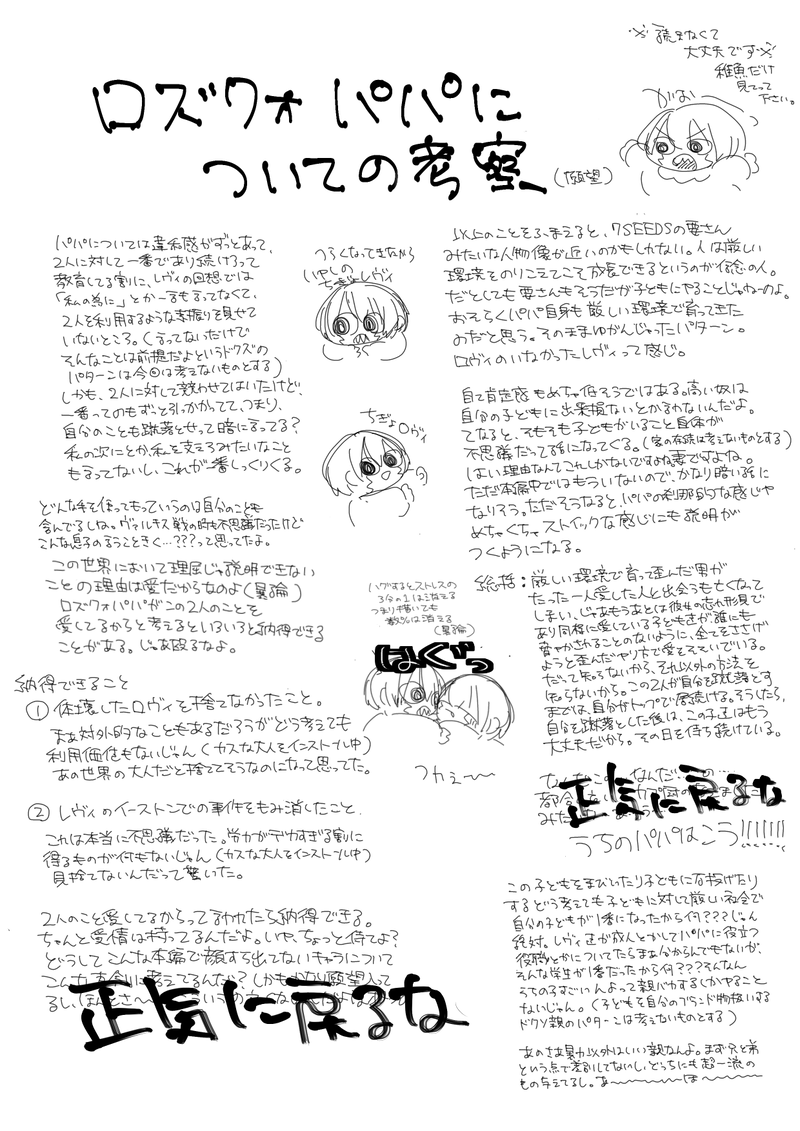 ロズウォパパに
ついての考察
(願望)
読まなくて
大丈夫です
稚魚だけ
見てって
下さい。
がお
パパについては違和感がずっとあって、
2人に対して一番であり続けろって
教育してる割に、レヴィの回想では
「私の為に」とか一言も言ってなくて、
2人を利用するような素振りを見せて
いないところ。(言ってないだけで
そんなことは前提だよというドクズの
パターンは今回は考えないものとする)
しかも、2人に対して競わせてはいたけど、
一番ってのもずっと引っかかってて、つまり、
自分のことも蹴落とせって暗に言ってる?
私の次にとか、私を支えろみたいなこと
も言ってないし、これが一番しっくりくる。
どんな手を使ってもっていうのは自分のことも
含んでるしね。ヴァルキス戦の時も不思議だったけど
こんな息子の言うこときく…???って思ってたよ。
この世界において理屈じゃ説明できない
ことの理由は愛だからなのよ(暴論)
ロズウォパパがこの2人のことを
愛してるからと考えるといろいろと納得できる
ことがある。じゃあ殴るなよ。
納得できること
① 体壊したロヴィを捨てなかったこと。
まぁ対外的なこともあるだろうがどう考えても
利用価値もないじゃん(カスな大人をインストール中)
あの世界の大人だと捨ててそうなのになって思ってた。
② レヴィのイーストンでの事件をもみ消したこと。
これは本当に不思議だった。労力がデカすぎる割に
得るものが何もないじゃん(カスな大人をインストール中)
見捨てないんだって驚いた。
2人のこと愛してるからって言われたら納得できる。
ちゃんと愛情は持ってるんだよ。いや、ちょっと待てよ?
どうしてこんな本編で顔すら出てないキャラについて
こんな真剣に考えてるんだ?しかもかなり願望入って
るし、
正気に戻るな
つらくなってきたから
いやしの
ちぎょレヴィ
ちぎょロヴィ
ハグするとストレスの
3分の1は消える
つまり描いても
数%は消える
(暴論)
はぐっ
つかぇ〜〜
以上のことをふまえると、7SEEDSの要さん
みたいな人物像が近いのかもしれない。人は厳しい
環境をのりこえてこそ成長できるというのが信念の人。
だとしても要さんもそうだが子どもにやることじゃねーのよ。
おそらくパパ自身も厳しい環境で育ってきた
のだと思う。そのままゆがんじゃったパターン。
ロヴィのいなかったレヴィって感じ。
自己肯定感もめちゃ低そうではある。高い奴は
自分の子どもに出来損ないとか言わないんだよ。
てなると、そもそも子どもがいること自体が
不思議だって話になってくる。(家の存続は考えないものとする)
はい理由なんてこれしかないですよね妻ですよね。
ただ本編中ではもういないので、かなり暗い話に
なりそう。ただそうなると、パパの刹那的な感じや
めちゃくちゃストイックな感じにも説明が
つくようになる。
総括:厳しい環境で育って歪んだ男が
たった一人愛した人と出会うも亡くなって
しまい、じゃあもうあとは彼女の忘れ形見で
あり同様に愛している子ども達が誰にも
脅かされることのないように、全てをささげ
ようと歪んだやり方で愛をそそいでいる。
だって知らないから、それ以外の方法を
知らないから。この2人が自分を蹴落とす
までは、自分がトップで居続ける。そうしたら、
自分を蹴落とした後は、この子達はもう
大丈夫だから。その日を待ち続けている。
正気に戻るな
うちのパパはこう!!!!!!!
この子どもをまびいたり子どもに石投げたり
するどう考えても子どもに対して厳しい社会で
自分の子どもが1番になったから何???じゃん
絶対。レヴィ達が成人とかしてパパに役立つ
役職とかについてたらまぁ分からんでもないが、
そんな学生が1番だったから何???そんなん
うちの子すごいんよって親バカするしかやること
ないじゃん。(子どもを自分のブランド物扱いする
ドクソ親のパターンは考えないものとする)
あのさぁ暴力以外はいい親なんよ。まず兄と弟
という点で差別してないし、どっちにも超一流の
もの与えてるし。あ〜〜〜〜ほ〜〜〜〜